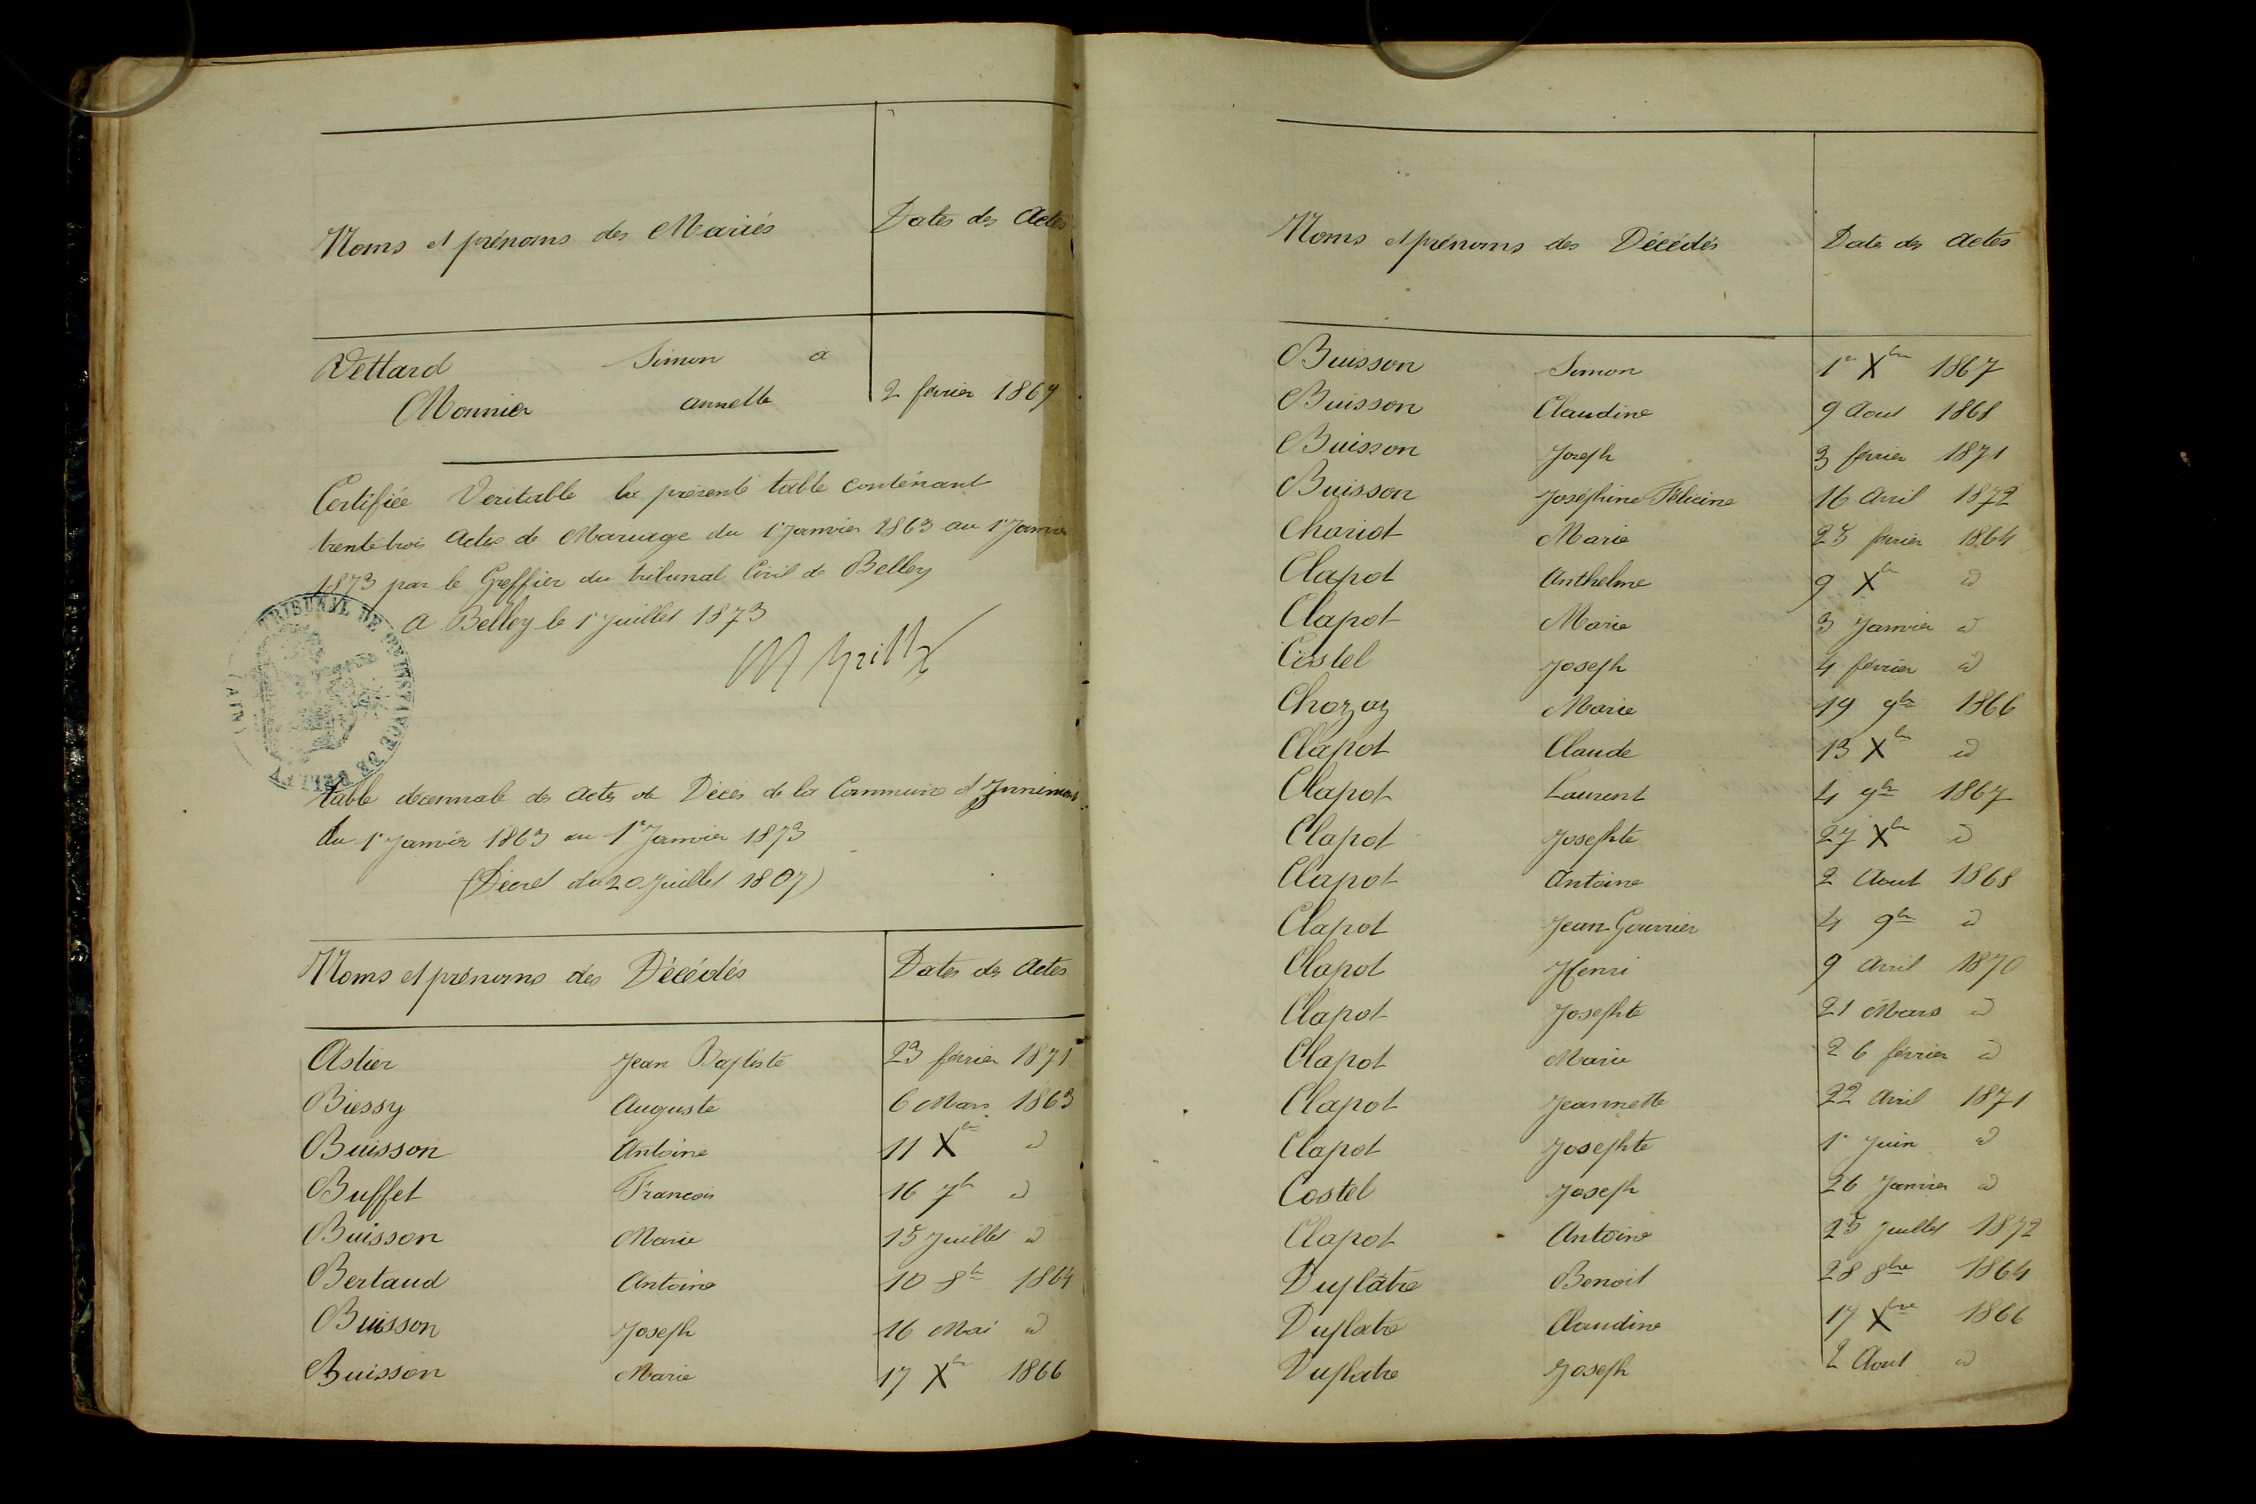 Noms et prénoms des Mariés Dates des Actes
Vettard Simon a
Monnier annette 2 fevrier 1867
Certifiée Veritable la présente table contenant
trente trois Actes de Mariage du 1er Janvier 1863 au 1er Janvier
1873 par le Greffier du tribunal Civil de Belley
A Belley le 1er Juillet 1873
TRIBUNAL DE 1re INSTANCE DE BELLEY (AIN)
table décennale des actes de Décès de la Commune d'Innimont
du 1er Janvier 1863 au 1er Janvier 1873
(Décret du 20 Juillet 1807)
Noms et prénoms des Décédés Dates des Actes
Astier Jean Baptiste 23 février 1871
Biessy Auguste 6 Mars 1863
Buisson Antoine 11 Xbre id
Buffet Francois 16 7bre id
Buisson Marie 15 Juillet id
Bertaud Antoine 10 8bre 1864
Buisson Joseph 16 Mai id
Buisson Marie 17 Xbre 1866
Noms et prénoms des Décédés Dates des actes
Buisson Simon 1er Xbre 1867
Buisson Claudine 9 Aout 1868
Buisson Joseph 3 fevrier 1871
Buisson Joséphine Félicine 16 Avril 1872
Chariot Marie 23 fevrier 1864
Clapot Anthelme 9 Xbre id
Clapot Marie 3 Janvier id
Costel Joseph 4 fevrier id
Chozaz Marie 19 9bre 1866
Clapot Claude 13 Xbre id
Clapot Laurent 4 9bre 1867
Clapot Josephte 27 Xbre id
Clapot Antoine 2 Aout 1868
Clapot Jean 4 9bre id
Clapot Henri 9 Avril 1870
Clapot Josephte 21 Mars id
Clapot Marie 26 février id
Clapot Jeannette 22 Avril 1871
Clapot Josephte 1er Juin id
Costel Joseph 26 Janvier id
Clapot Antoine 25 Juillet 1872
Duplâtre Benoit 28 8bre 1864
Duplatre Claudine 17 Xbre 1866
Duplatre Joseph 2 Aout id